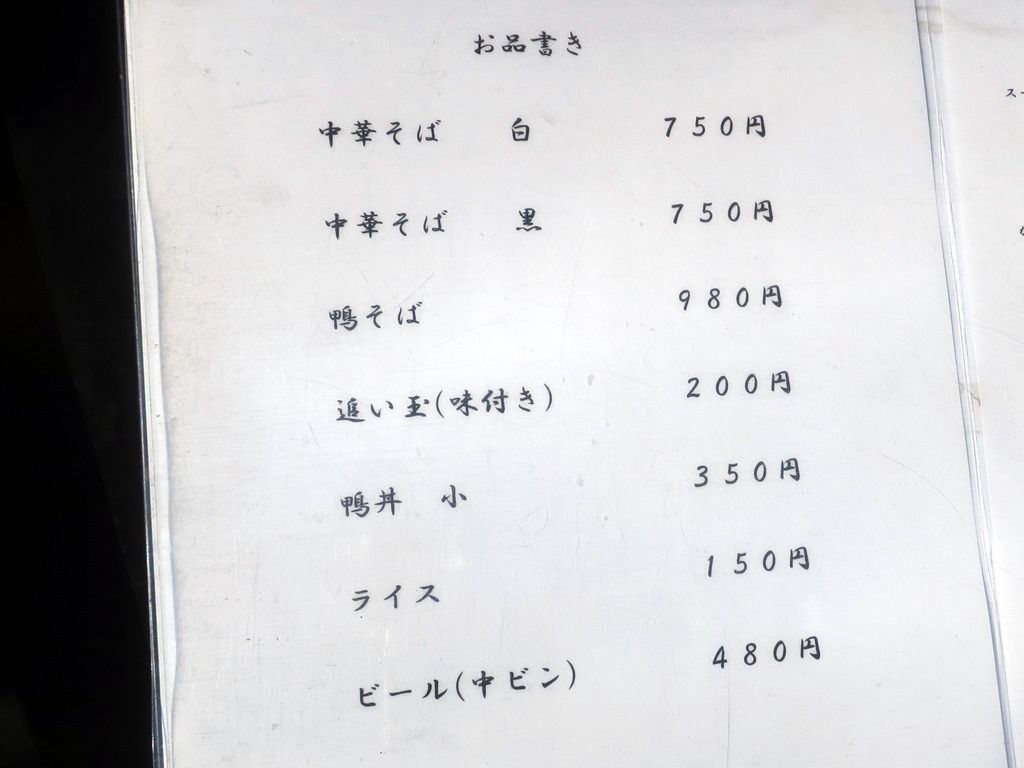 お品書き
中華そば 白 ７５０円
中華そば 黒 ７５０円
鴨そば ９８０円
追い玉(味付き) ２００円
鴨丼 小 ３５０円
ライス １５０円
ビール(中ビン) ４８０円